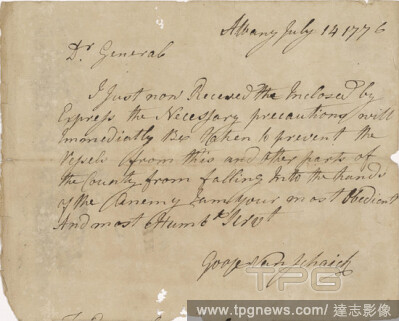 Albany July 14 1776
Dr. General
I Just now Receved the Inclosed by
Express the Necessary precautions will
Immediatly Be taken to prevent the
Vessels from this and other parts of
the County from falling Into the hands
of the Enemy I am your most Obedient
And most Humbe Servt
Goose Van Schaick
TPG
www.tpgnews.com / 達志影像